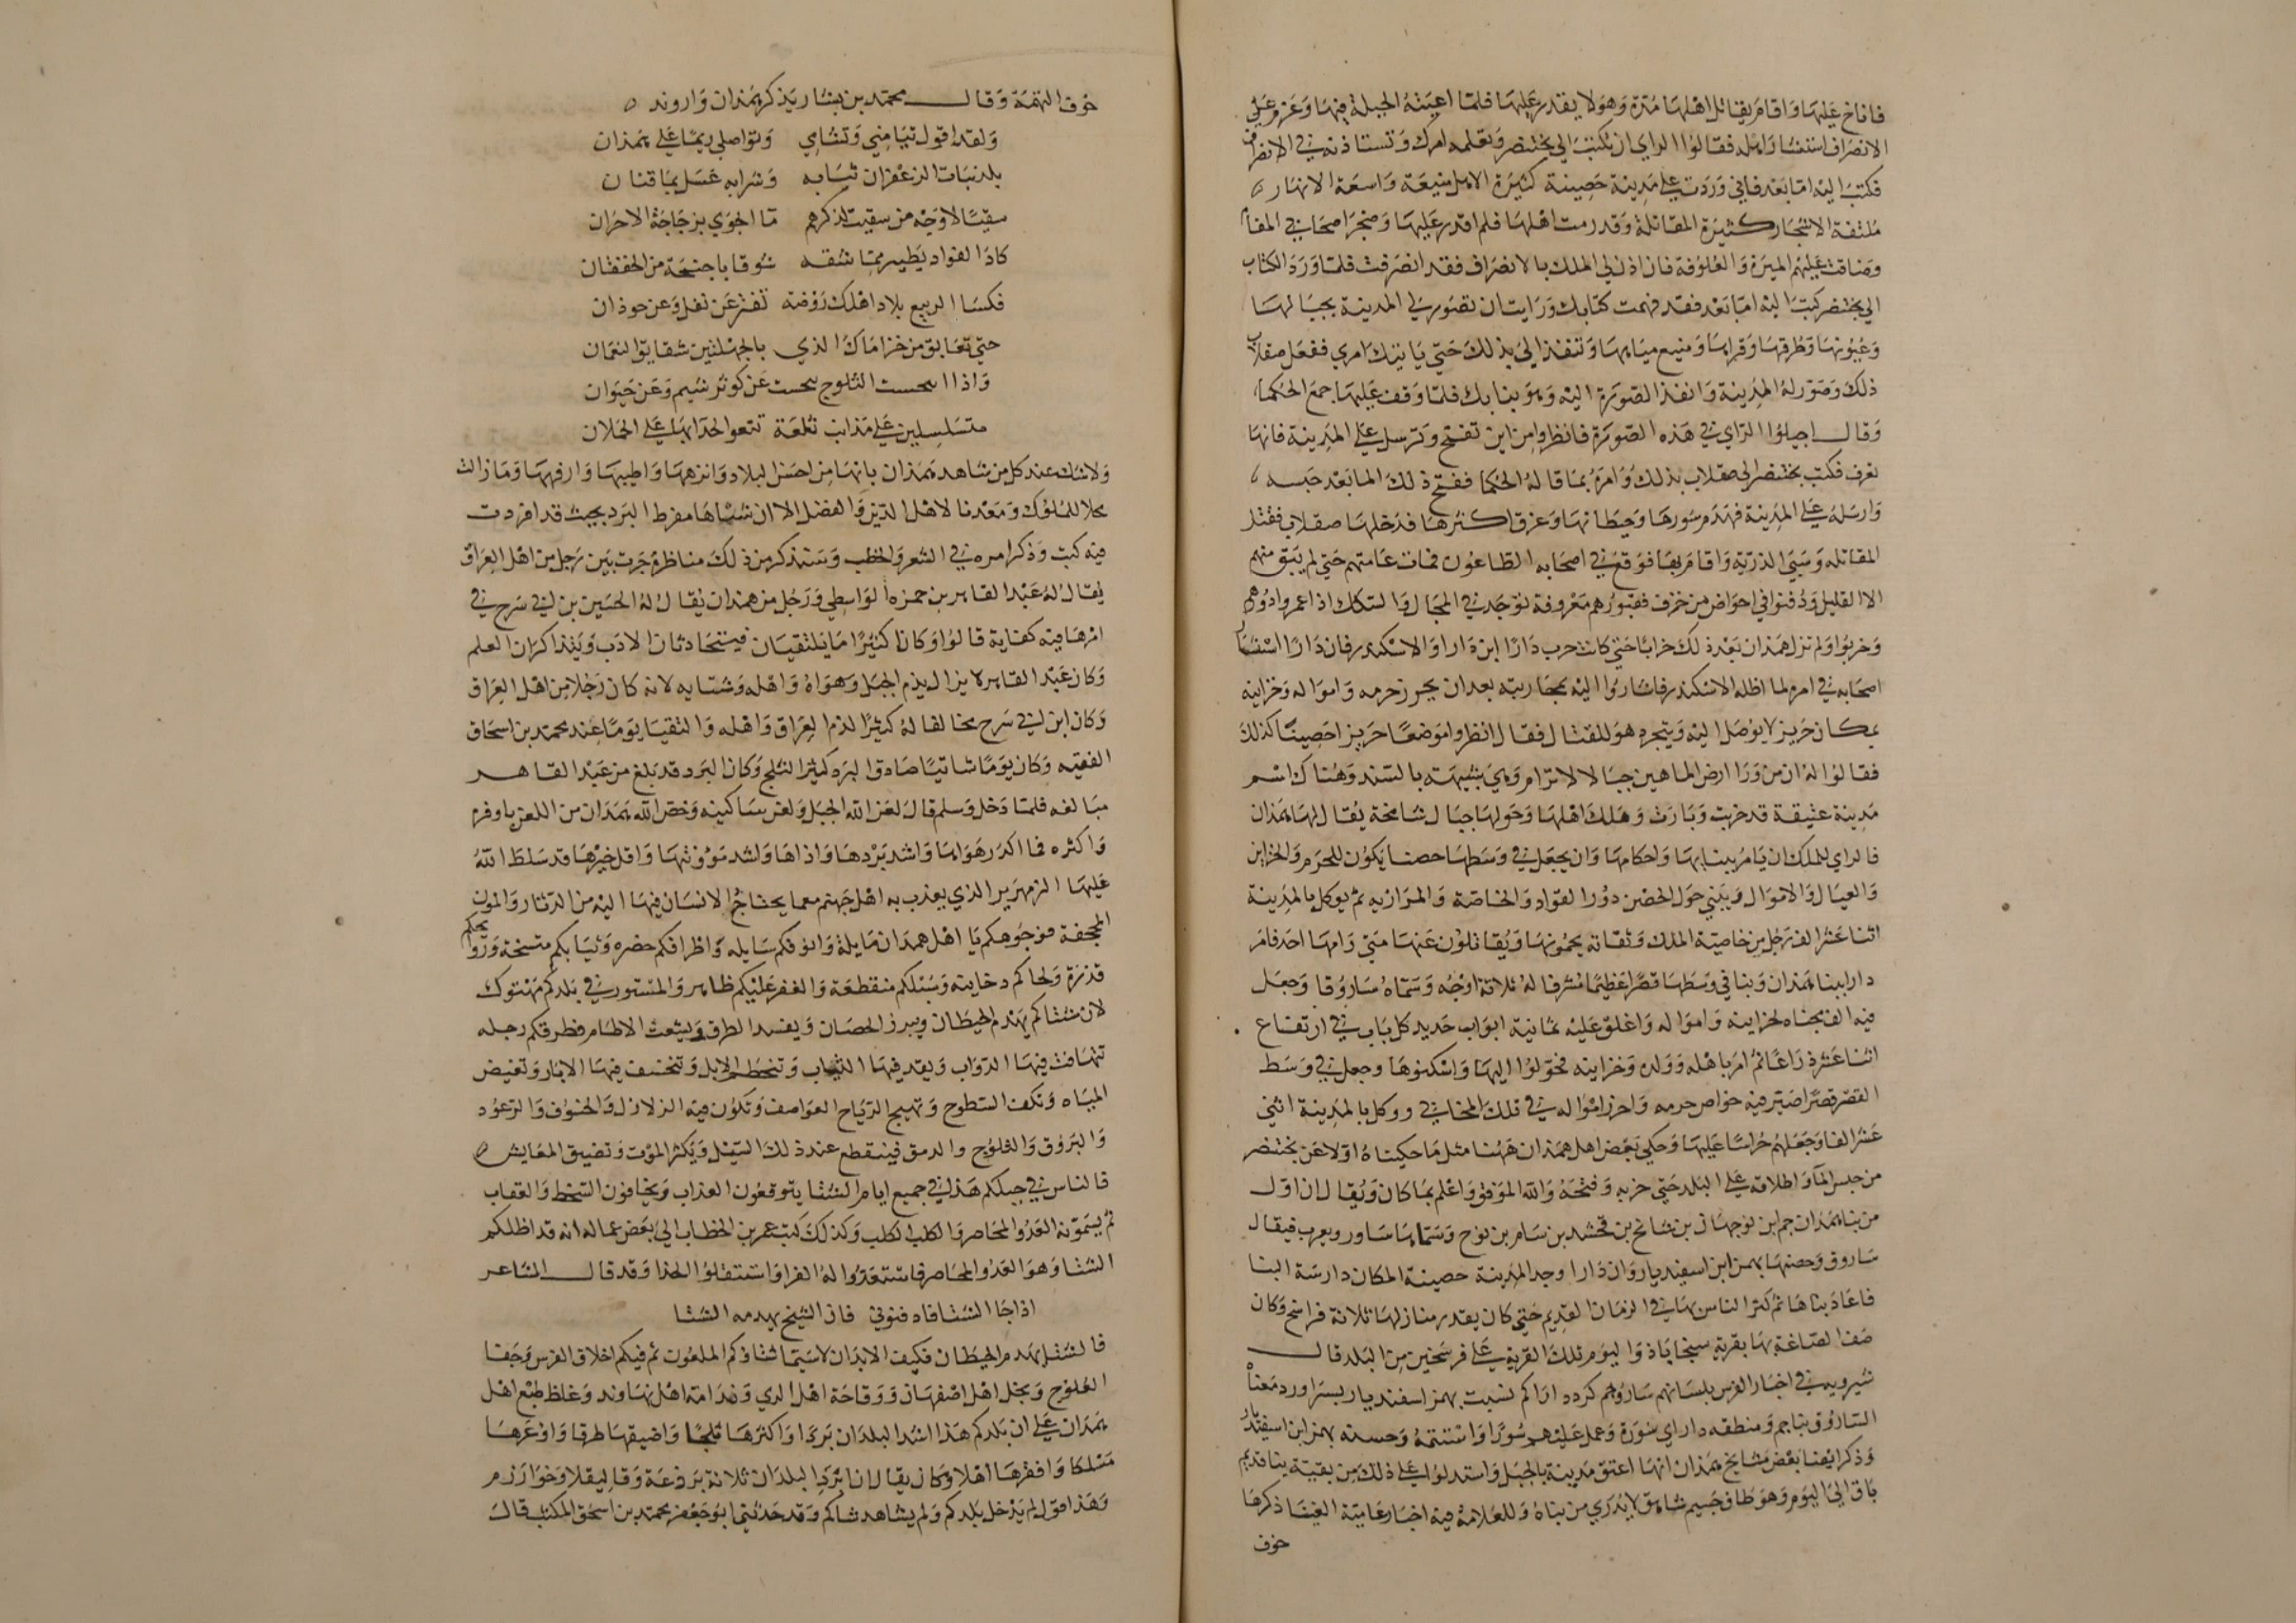 فاناخ عليها واقام يقاتل اهلها مدة وهو لا يقدر عليها فلما اعيته الحيلة فيها وعزم على
الانصراف استشار اهله فقالوا الراي ان تكتب الي بختنصر وتعلمه امرك وتستاذنه في الانصراف
فكتب اليه اما بعد فاني وردت علي مدينة حصينة كثيرة الاهل منيعة واسعة الانهار
ملتفة الاشجار كثيرة المقاتلة وقد رمت اهلها فلم اقدر عليها وضجر اصحابي المقام
وضاقت عليهم الميرة والعلوفة فان اذن لي الملك بالانصراف فقد انصرفت فلما ورد الكتاب
الي بختنصر كتب اليه اما بعد فقد فهمت كتابك ورايت ان تصور لي المدينة بجبالها
وعيونها وطرقها وقراها ومنبع مياهها وتنفذ الي بذلك حتي ياتيك امري ففعل صقلاب
ذلك وصور له المدينة وانفذ الصورة اليه وهو ببابل فلما وقف عليها جمع الحكما
وقال اجيلوا الراي في هذه الصورة فانظروا من اين تفتح وترسل علي المدينة فانها
تغرق فكتب بختنصر الي صقلاب بذلك وامره بما قاله الحكما ففتح ذلك الما بعد حبسه
وارسله علي المدينة فهدم سورها وحيطانها وغرق اكثرها فدخلها صقلاب فقتل
المقاتله وسبي الذرية واقام بها فوقع في اصحابه الطاعون فمات عامتهم حتي لم يبق منهم
الا القليل ودفنوا في احواض من خزف فقبورهم معروفة توجد في المحال والسكك اذا عمروا دورهم
وخربوا ولم تزل همذان بعد ذلك خرابا حتي كانت حرب دارا ابن دارا والاسكندر فان دارا استشار
اصحابه في امره لما اظله الاسكندر فاشاروا اليه بمحاربته بعد ان يحرز حرمه وامواله وخزاينه
بمكان حريز لا يوصل اليه ويتجرد هو للقتال فقال انظروا موضعا حريزا حصينا كذلك
فقالوا له ان من ورا ارض الماهين جبالا لا ترام وهي شبيهة بالسند وهناك اسم
مدينة عتيقة قد خربت وبارت وهلك اهلها وحولها جبال شامخة يقال لها همذان
فالراي للملك ان يامر ببنايها واحكامها وان يجعل في وسطها حصنا يكون للحرم والخزاين
والعيال والاموال ويبني حول الحصن دور القواد والخاصة والمرازبه ثم يوكل بالمدينة
اثنا عشر الف رجل من خاصية الملك وثقاته يحمونها ويقاتلون عنها متي رامها احد فامر
دارا ببنا همذان وبنا في وسطها قصرا عظيما مشرفا له ثلاثة اوجه وسماه ساروقا وجعل
فيه الف مخباه لخزاينه وامواله واغلق عليه ثمانية ابواب حديد كل باب في ارتفاع
اثنا عشر ذراعا ثم امر باهله وولده وخزاينه فحولوا اليها واسكنوها وجعل في وسط
القصر قصرا صير فيه خواص حرمه واحرز امواله في تلك المخابي ووكل بالمدينة اثني
عشر الفا وجعلهم حراسا عليها وحكي بعض اهل همذان ههنا مثل ما حكيناه اولا عن بختنصر
من حبس الما واطلاقه علي البلد حتي خربه وفتحه والله الموفق واعلم بما كان ويقال ان اول
من بنا همذان جم ابن نوجهان بن شالخ بن فخشد بن سام بن نوح وسماها سارو ويعرب فيقال
ساروق وحصنها بهمن ابن اسفنديار وان دارا وجد المدينة حصينة المكان دارسة البنا
فاعاد بناها ثم كثر الناس بها في الزمان القديم حتي كان يقدر منازلها ثلاثة فراسخ وكان
صف الصاغة بها بقرية سنجاباذ واليوم تلك القرية علي فرسخين من البلد قال
شيرويه في اخبار الفرس بلسانهم سارو جم كرد دارا كمر نسبت بهمن اسفنديار بسر اورد معناه
الساروق بناه جم ومنطقه داراي سوره وعمل عليه سورا واستتمه وحسنه بهمن ابن اسفنديار
وذكر ايضا بعض مشايخ همذان انها اعتق مدينة بالجبل واستدلوا علي ذلك من بقية بنا قديم
باق الي اليوم وهو طاق جسيم شاهق لا يدري من بناه وللعلامة فيه اخبار عامية الغينا ذكرها
خوف
خوف التهمة وقال محمد بن بشار يذكر همذان واروند
ولقد اقول تيامني وتشاي وتواصلي ريما علي همذان
بلد نبات الزعفران ثيابه وشرابه عسل بما قنان
سقيا لاوجه من سقيت لذكرهم ما الجوي بزجاجة الاحزان
كاد الفواد يطير مما شقه شوقا باجنحة من الخفقان
فكسا الربيع بلاد اهلك روضة تفتر عن نفل وعن حوذان
حتي تعانق من خزاماك الذي بالجهلتين شقايق النعمان
واذا الثلوج عن كوثر شبم وعن حيوان
متسلسلين علي مذانب تلعة تثغوا الجدا بها علي الحملان
ولا شك عند كل من شاهد همذان بانها من احسن البلاد وانزهها واطيبها وارفهها وما زالت
محلا للملوك ومعدنا لاهل الدين والفضل الا ان شتاها مفرط البرد بحيث قد افردت
فيه كتب وذكر امره في الشعر والخطب وسنذكر من ذلك مناظرة جرت بين رجل من اهل العراق
يقال له عبد القاهر بن حمزه الواسطي ورجل من همذان يقال له الحسين بن ابي سرح في
امرها فيه كفاية قالوا وكانا كثيرا ما يلتقيان فيتحادثان الادب ويتذاكران العلم
وكان عبد القاهر لا يزال يذم الجبل وهواه واهله وشتايه لانه كان رجلا من اهل العراق
وكان ابن ابي سرح مخالفا له كثيرا لذم العراق واهله والتقيا يوما عند محمد بن اسحاق
الفقيه وكان يوما شاتيا صادق البرد كثير الثلج وكان البرد قد بلغ من عبد القاهر
مبالغه فلما دخل وسلم قال لعن الله الجبل ولعن ساكنيه وخص الله همذان من اللعن باوفره
واكثره فما اكدر هواها واشد بردها واذاها واشد موونتها واقل خيرها قد سلط الله
عليها الزمهرير الذي يعذب به اهل جهنم مع ما يحتاج الانسان فيها اليه من الدثار والمون
المجحفة فوجوهكم يا اهل همذان مايلة وانوفكم سايله واطرافكم خضره وثيابكم متسخة وروايحكم
قذرة ولحاكم دخانية وسبلكم منقطعة والفقر عليكم ظاهر والمستور في بلدكم مهتوك
لان شتاكم يهدم الحيطان ويبرز الحصان ويفسد الطرق ويشعث الاطام فطرقكم وحله
تتهافت فيها الدواب ويقذر فيها الثياب وتتحطم الابل وتنخسف فيها الابار وتفيض
المياه وتكف السطوح وتهيج الرياح العواصف وتكون فيه الزلازل والخسوف والرعود
والبروق والثلوج والدمق فينقطع عند ذلك السبيل ويكثر الموت وتضيق المعايش
فالناس في جبلكم هذا في جميع ايام الشتا يتوقعون العذاب ويخافون السخط والعقاب
ثم يسمونه العدو المحاصر والكلب الكلب وكذلك كتب عمر بن الخطاب الي بعض عماله انه قد اظلكم
الشتا وهو العدو المحاصر فاستعدوا له الفرا واستنعلوا الحذا وقد قال الشاعر
اذا جا الشتا فادفنوني فان الشيخ يهدمه الشتا
فالشتا يهدم الحيطان فكيف الابدان لاسيما شتاوكم الملعون ثم فيكم اخلاق الفرس وجفا
العلوج وبخل اهل اصفهان ووقاحة اهل الري وفدامة اهل نهاوند وغلظ طبع اهل
همذان علي ان بلدكم هذا اشد البلدان بردا واكثرها ثلجا واضيقها طرقا واوعرها
مسلكا وافقرها اهلا وكان يقال ان ابرد البلدان ثلاثة بردعة وقاليقلا وخوارزم
وهذا قول لم يدخل بلدكم ولم يشاهد شتاكم وقد حدثني ابو جعفر محمد بن اسحق المكتب قال